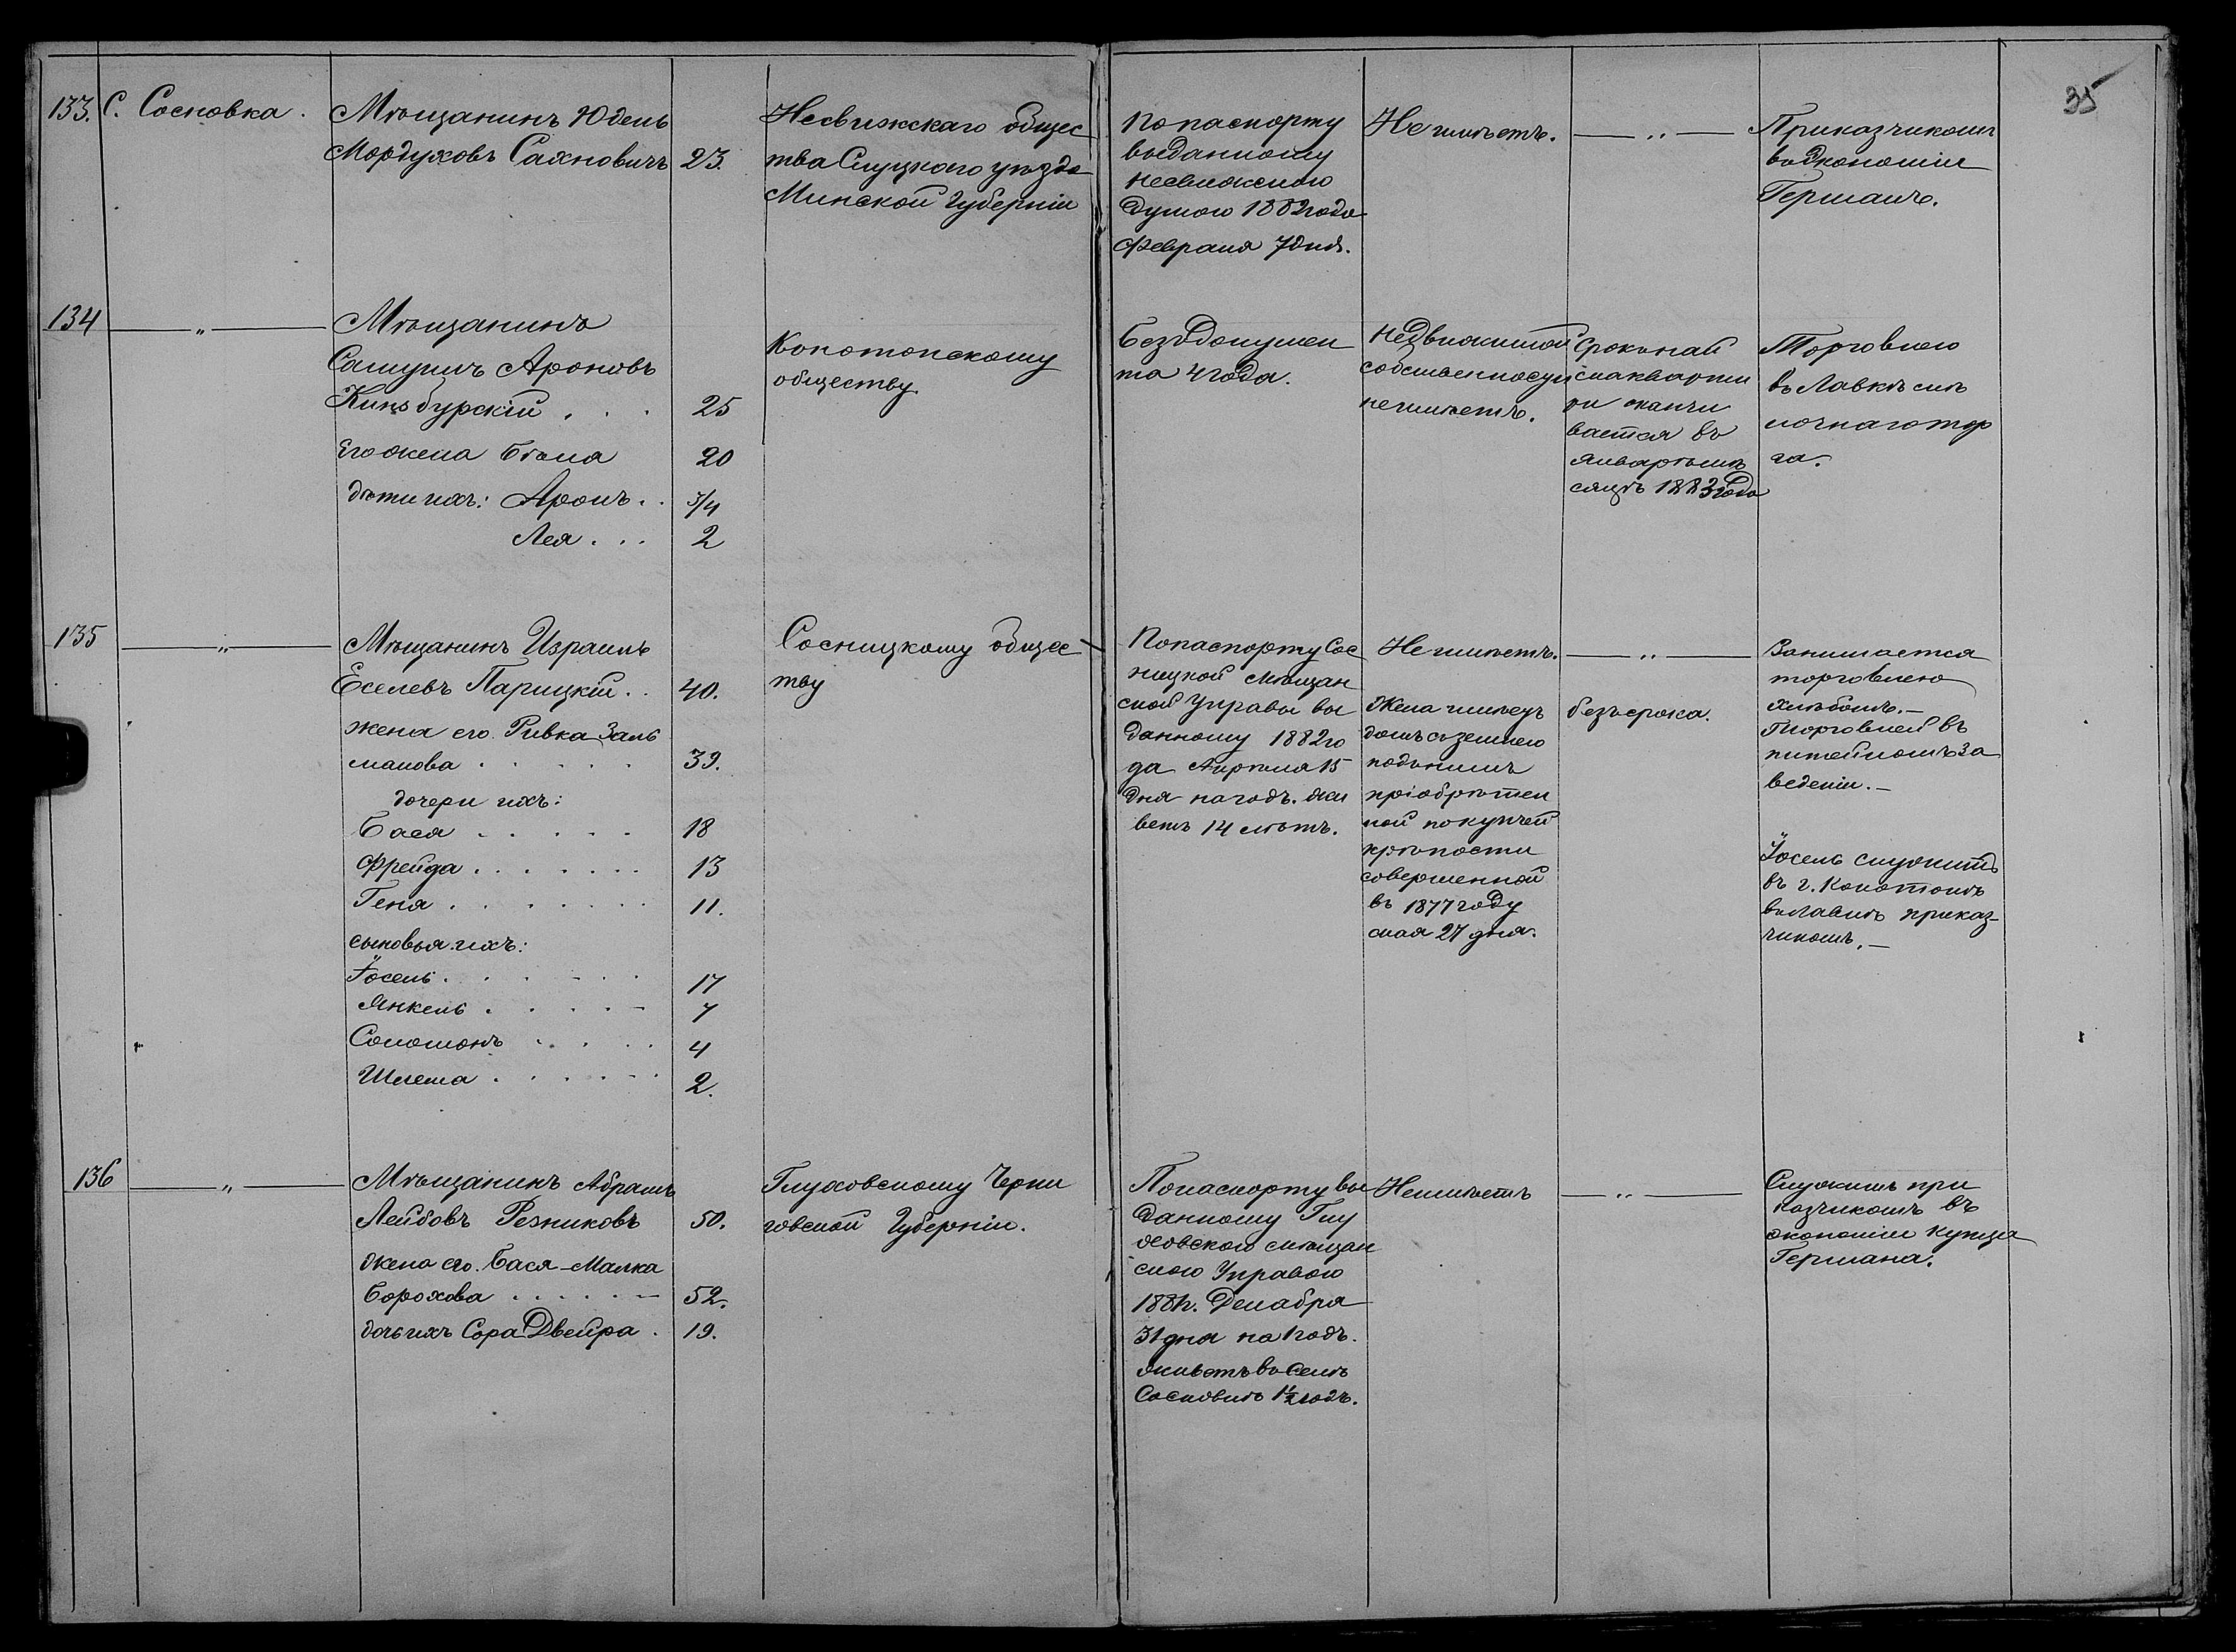 35
133. С. Сосновка.
Мѣщанинъ Юдель
Мордуховъ Сахновичъ 23.
Несвижскаго общес
тва Слуцкого уѣзда
Минской Губерніи
По паспорту
выданному
Несвижскою
Думою 1882 года
Февраля 7 дня.
Не имѣетъ.
— „ —
Приказчикомъ
въ экономіи
Германъ.
134 — „ —
Мѣщанинъ
Самуилъ Ароновъ
Кинзбурскій . . . 25
Его жена Бѣла 20
дѣти ихъ: Аронъ . . 3/4
Лея . . . 2
Конотопскому
обществу
Безъ докумен
та 4 года.
Недвижимой
собственности
не имѣетъ.
Срокъ най
ма кварти
ри оканчи
вается въ
Январѣ мѣ
сяцѣ 1883 года
Торговлею
въ Лавкѣ мѣ
лочнаго тор
га.
135 — „ —
Мѣщанинъ Израиль
Еселевъ Парицкій . . 40.
жена его Ривка Заль
манова . . . . . 39.
дочери ихъ:
Бася . . . . . 18
Фрейда . . . . . . . 13
Геня . . . . . . . . 11.
сыновья ихъ:
Іосель . . . . . . 17
Янкель . . . . . – 7
Соломонъ . . . . 4
Шлема . . . . . . 2.
Сосницкому общес
тву
По паспорту Сос
ницкой Мѣщан
ской Управы вы
данному 1882 го
да Апрѣля 15
дня на годъ. жи
ветъ 14 лѣтъ.
Не имѣетъ.
Жена имѣетъ
домъ съ землею
подъ нимъ
пріобрѣтен
ной по купчей
крѣпости
совершенной
въ 1877 году
мая 27 дня.
— „ —
безъ срока.
Занимается
торговлею
хлѣбомъ. –
Торговлей въ
питейномъ за
веденіи. –
Іосель служитъ
въ г. Конотопѣ
въ лавкѣ приказ-
чикомъ. –
136 — „ —
Мѣщанинъ Абрамъ
Лейбовъ Резниковъ 50.
жена его Бася-Малка
Борохова . . . . . – 52.
дочь ихъ Сора Двейра . 19.
Глуховскому Черни
говской Губерніи.
По паспорту вы
данному Глу
ховскою мѣщан
скою Управою
1881 г. Декабря
31 дня на 1 годъ.
живетъ въ селѣ
Сосновкѣ 1 1/2 годъ.
Не имѣетъ
— „ —
Служитъ при
казчикомъ въ
экономіи купца
Германа.